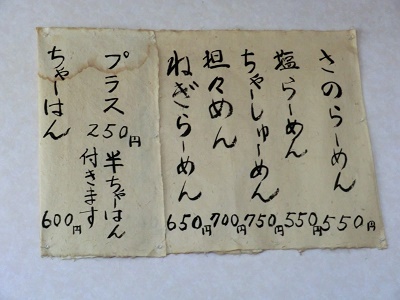 さのらーめん 550円
塩らーめん 550円
ちゃーしゅーめん 750円
担々めん 700円
ねぎらーめん 650円
プラス250円 半ちゃーはん付きます
ちゃーはん 600円